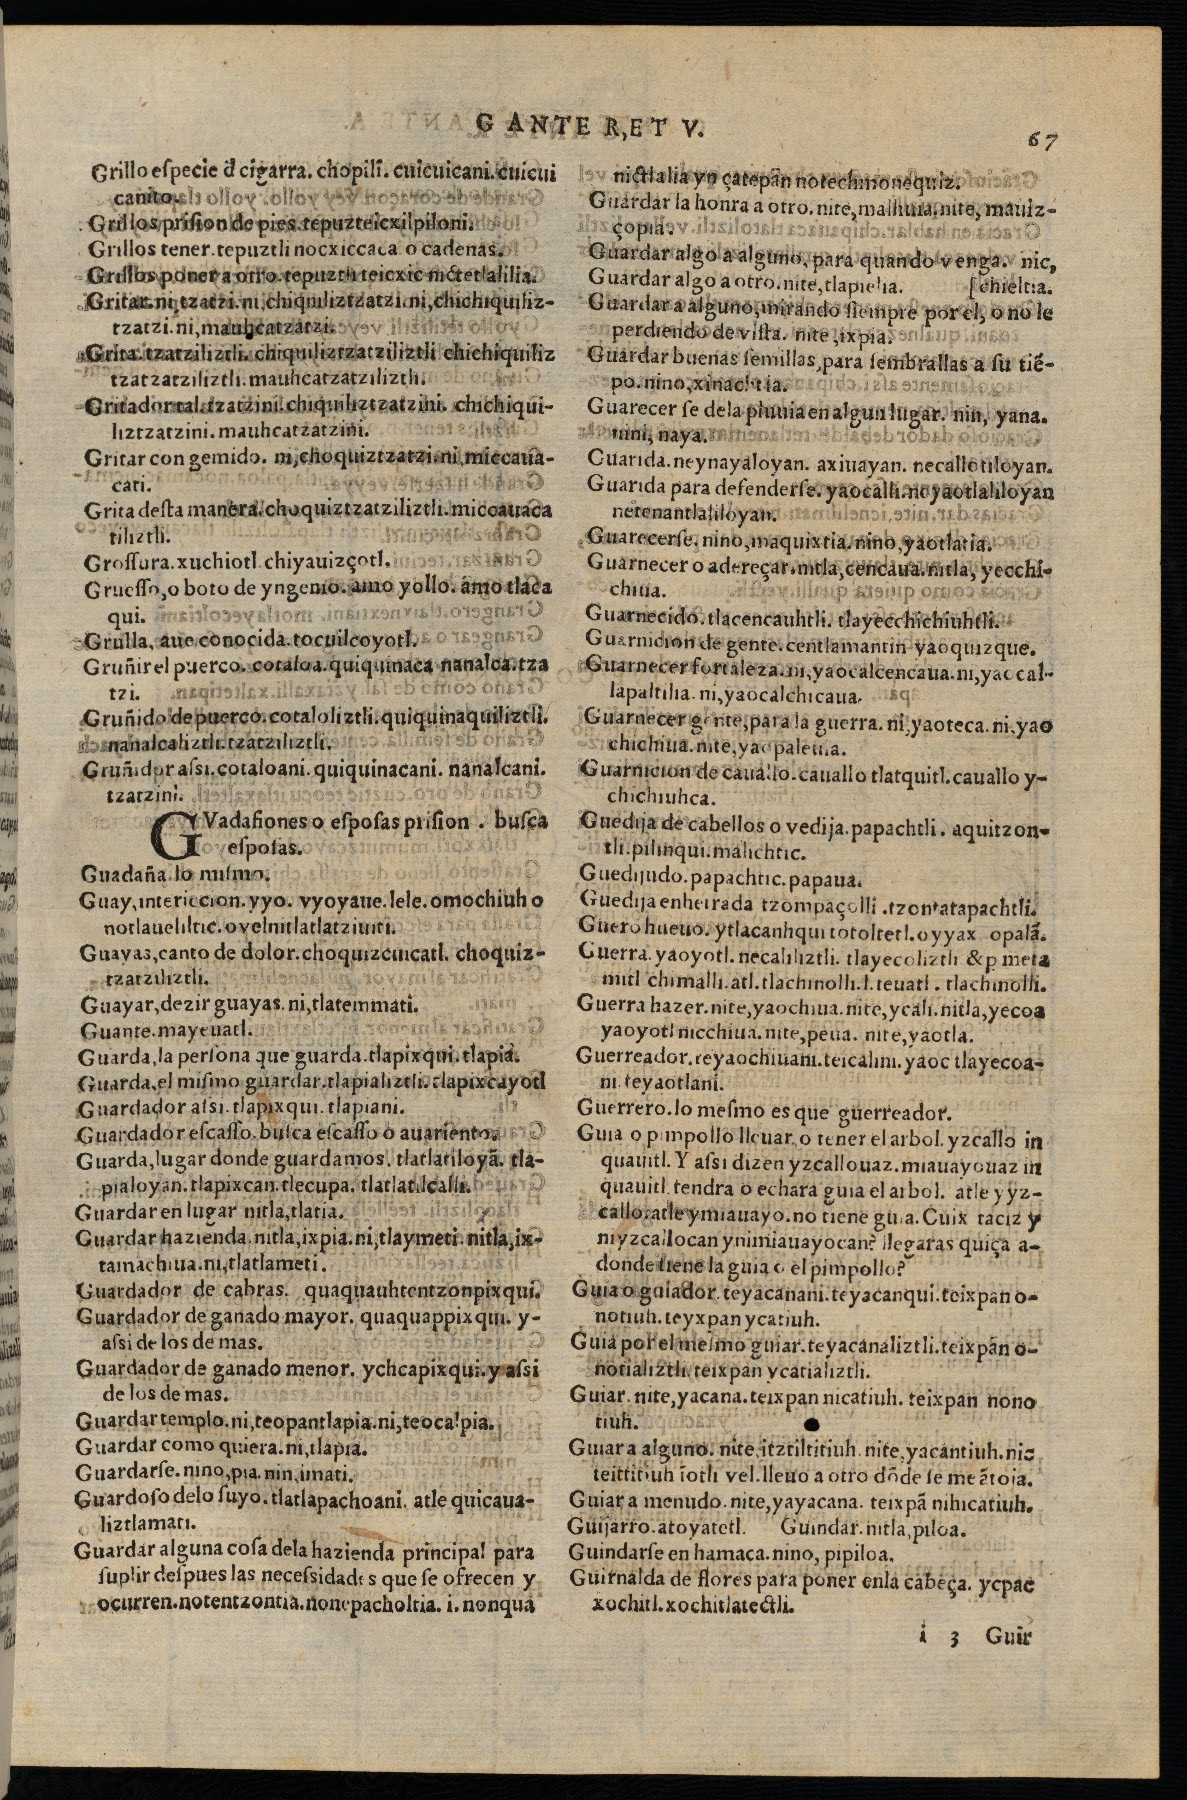 G ANTE R, ET V.
67
Grillo eſpecie đ cigarra. chopilĩ. cuicuicani. cuicui
canito.
Grillos priſion de pies. tepuzteicxilpiloni.
Grillos tener. tepuztli nocxiccaca o cadenas.
Grillos poner a otro. tepuztli teicxic nictetlalilia.
Gritar. ni, tzatzi. ni, chiquiliztzatzi. ni, chichiquiliz-
tzatzi. ni, mauhcatzatzi.
Grita. tzatziliztli. chiquiliztzatziliztli chichiquiliz
tzatzatziliztli. mauhcatzatziliztli.
Gritador tal. tzatzini. chiquiliztzatzini. chichiqui-
liztzatzini. mauhcatzatzini.
Gritar con gemido. ni, choquiztzatzi. ni, miccaua-
cati.
Grita deſta manera. choquiztzatziliztli. miccauaca
tiliztli.
Groſſura. xuchiotl chiyauizçotl.
Grueſſo, o boto de yngenio. amo yollo. amo tlaca
qui.
Grulla, aue conocida. tocuilcoyotl.
Gruñir el puerco. cotaloa. quiquinaca nanalca. tza
tzi.
Gruñido de puerco. cotaloliztli. quiquinaquiliztli.
nanalcaliztli. tzatziliztli.
Gruñidor aſsi. cotaloani. quiquinacani. nanalcani.
tzatzini.
GVadafiones o eſpoſas priſion . buſca
eſpoſas.
Guadaña. lo miſmo.
Guay, interiecion. yyo. vyoyaue. lele. omochiuh o
notlaueliltic. ovelnitlatlatziuiti.
Guayas, canto de dolor. choquizcuicatl. choquiz-
tzatziliztli.
Guayar, dezir guayas. ni, tlatemmati.
Guante. mayeuatl.
Guarda, la perſona que guarda. tlapixqui. tlapia.
Guarda, el miſmo guardar. tlapializtli. tlapixcayotl
Guardador aſsi. tlapixqui. tlapiani.
Guardador eſcaſſo. buſca eſcaſſo o auariento.
Guarda, lugar donde guardamos. tlatlatiloyã. tla-
pialoyan. tlapixcan. tlecupa. tlatlatilcalli.
Guardar en lugar nitla, tlatia.
Guardar hazienda. nitla, ixpia. ni, tlaymeti. nitla, ix-
tamachiua. ni, tlatlameti.
Guardador de cabras. quaquauhtentzonpixqui.
Guardador de ganado mayor. quaquappixqui. y-
aſsi de los de mas.
Guardador de ganado menor. ychcapixqui. y aſsi
de los de mas.
Guardar templo. ni, teopantlapia. ni, teocalpia.
Guardar como quiera. ni, tlapia.
Guardarſe. nino, pia. nin, imati.
Guardoſo delo ſuyo. tlatlapachoani. atle quicaua-
liztlamati.
Guardar alguna coſa dela hazienda principal para
ſuplir deſpues las neceſsidades que ſe ofrecen y
ocurren. notentzontia. nonepacholtia. i. nonqua
nictlalia yn çatepan notechmonequiz.
Guardar la honra a otro. nite, malhuia. nite, mauiz-
çopia.
Guardar algo a alguno, para quando venga. nic,
Guardar algo a otro. nite, tlapielia. [chieltia.
Guardar a alguno, mirando ſiempre por el, o no le
perdiendo de viſta. nite, ixpia.
Guardar buenas ſemillas, para ſembrallas a ſu tiẽ-
po. nino, xinachtia.
Guarecer ſe dela pluuia en algun lugar. nin, yana.
nini, naya.
Guarida. neynayaloyan. axiuayan. necallotiloyan.
Guarida para defenderſe. yaocalli. neyaotlaliloyan
netenantlaliloyan.
Guarecerſe. nino, maquixtia. nino, yaotlatia.
Guarnecer o adereçar. nitla, cencaua. nitla, yecchi-
chiua.
Guarnecido. tlacencauhtli. tlayecchichiuhtli.
Guarnicion de gente. centlamantin yaoquizque.
Guarnecer fortaleza. ni, yaocalcencaua. ni, yaocal-
lapaltilia. ni, yaocalchicaua.
Guarnecer gente, para la guerra. ni, yaoteca. ni, yao
chichiua. nite, yaopaleuia.
Guarnicion de cauallo. cauallo tlatquitl. cauallo y-
chichiuhca.
Guedija de cabellos o vedija. papachtli. aquitzon-
tli. pilinqui. malichtic.
Guedijudo. papachtic. papaua.
Guedija enhetrada tzompaçolli . tzontatapachtli.
Guero hueuo. ytlacanhqui totoltetl. oyyax opalã.
Guerra. yaoyotl. necaliliztli. tlayecoliztli & p meta
mitl chimalli. atl. tlachinolli. l. teuatl . tlachinolli.
Guerra hazer. nite, yaochiua. nite, ycali. nitla, yecoa
yaoyotl nicchiua. nite, peua. nite, yaotla.
Guerreador. teyaochiuani. teicalini. yaoc tlayecoa-
ni. teyaotlani.
Guerrero. lo meſmo es que guerreador.
Guia o pimpollo lleuar. o tener el arbol. yzcallo in
quauitl. Y aſsi dizen yzcallouaz. miauayouaz in
quauitl. tendra o echara guia el arbol. atle y yz-
callo. atle ymiauayo. no tiene guia. Cuix taciz y
niyzcallocan ynimiauayocan? llegaras quiça a-
donde tiene la guia o el pimpollo?
Guia o guiador. teyacanani. teyacanqui. teixpan o-
notiuh. teyxpan ycatiuh.
Guia por el meſmo guiar. teyacanaliztli. teixpan o-
notializtli. teixpan ycatializtli.
Guiar. nite, yacana. teixpan nicatiuh. teixpan nono
tiuh.
Guiar a alguno. nite, itztiltitiuh. nite, yacantiuh. nic
teittitiuh ĩotli vel. lleuo a otro dõde ſe me ãtoja.
Guiar a menudo. nite, yayacana. teixpã nihicatiuh.
Guijarro. atoyatetl. Guindar. nitla, piloa.
Guindarſe en hamaca. nino, pipiloa.
Guirnalda de flores para poner enla cabeça. ycpac
xochitl. xochitlatectli.
i 3 Guir